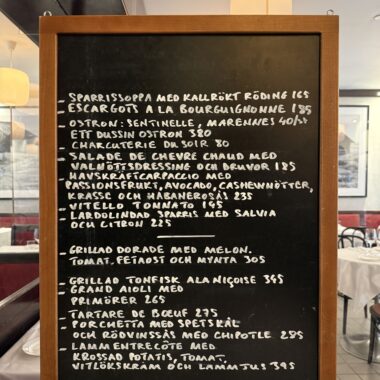 - SPARRISSOPPA MED KALLRÖKT RÖDING 165
- ESCARGOTS A LA BOURGUIGNONNE 185
- OSTRON: SENTINELLE, MARENNES 40/ST
ETT DUSSIN OSTRON 380
- CHARCUTERIE DU SOIR 80
- SALADE DE CHEVRÉ CHAUD MED
VALNÖTTSDRESSING OCH DRUVOR 185
- HAVSKRÄFTCARPACCIO MED
PASSIONSFRUKT, AVOCADO, CASHEWNÖTTER,
KRASSE OCH HABANEROSÅS 235
- VITELLO TONNATO 195
- LARDOLINDAD SPARRIS MED SALVIA
OCH CITRON 225
- GRILLAD DORADE MED MELON,
TOMAT, FETAOST OCH MYNTA 305
- GRILLAD TONFISK ALA NIÇOISE 345
- GRAND AIOLI MED
PRIMÖRER 265
- TARTARE DE BŒUF 275
- PORCHETTA MED SPETSKÅL
OCH RÖDVINSSÅS MED CHIPOTLE 285
- LAMMENTRECÔTE MED
KROSSAD POTATIS, TOMAT,
VITLÖKSKRÄM OCH LAMMJUS 395